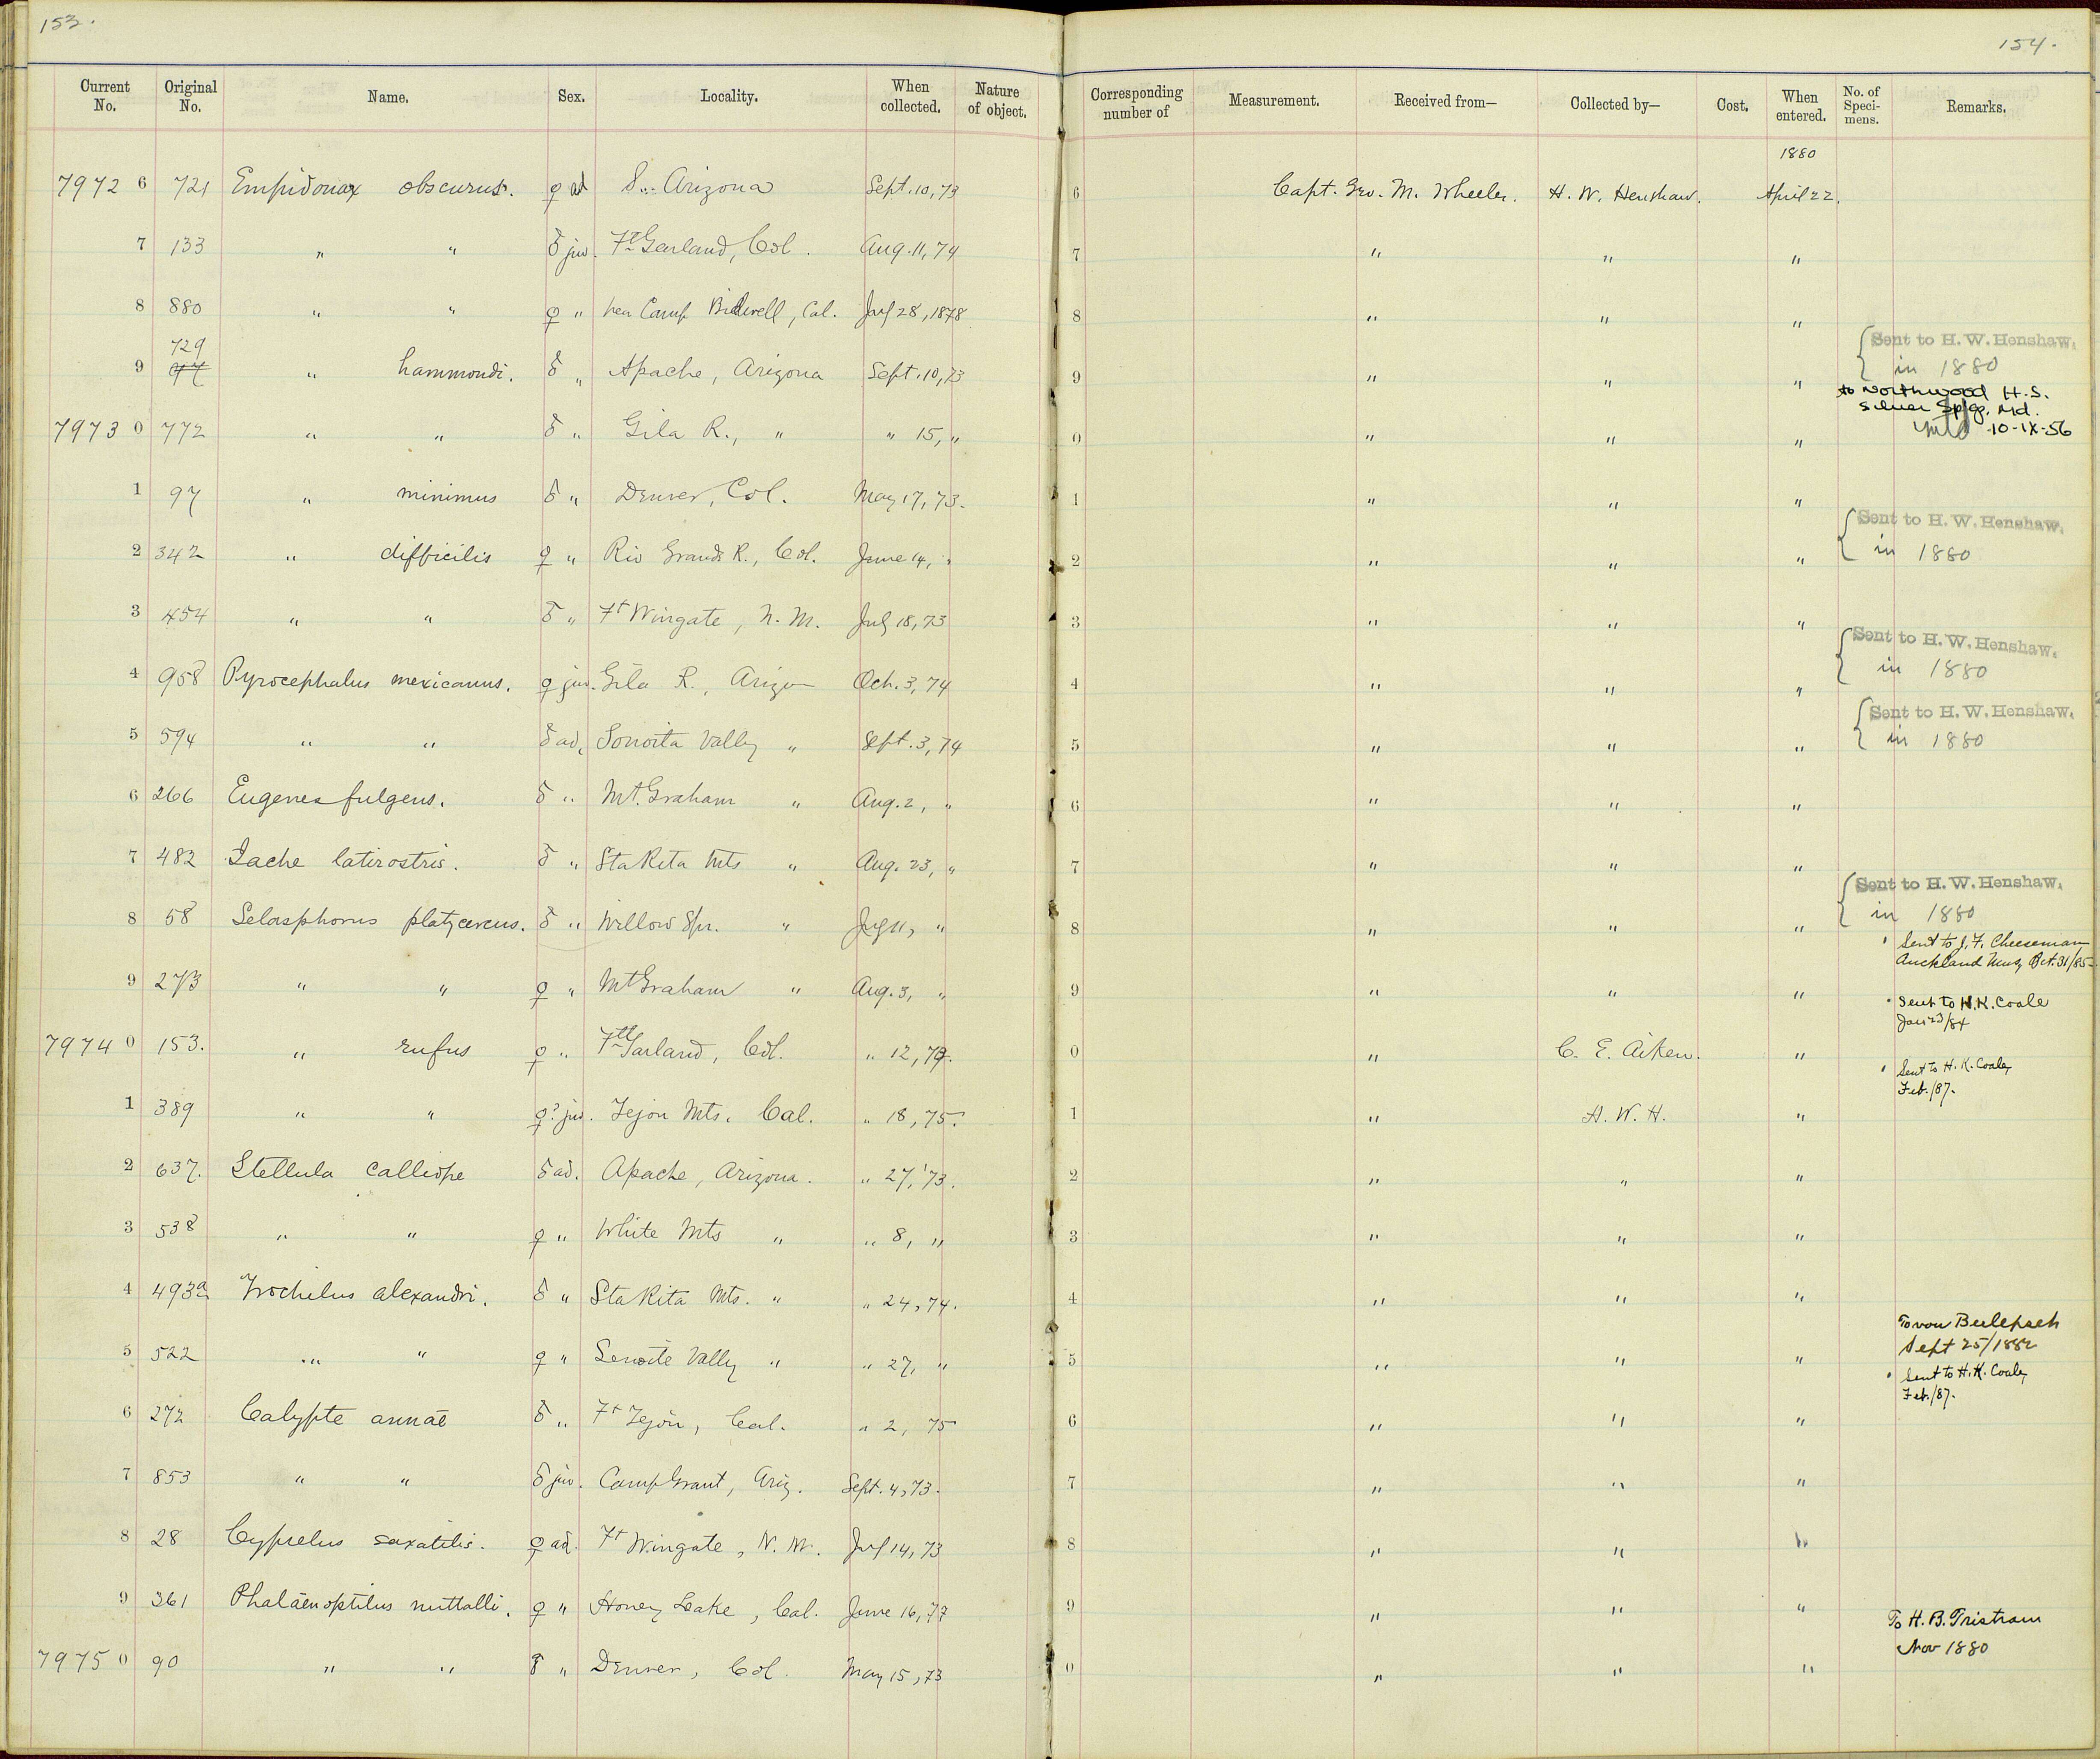 153.
Current No. Original No. Name. Sex. Locality. When collected. Nature of object.
7972 6 721 Empidonax obscurus. ♀ ad S. Arizona Sept. 10, 73
7 133 " " ♂ juv. Ft Garland, Col. Aug. 11, 74
8 880 " " ♀ " near Camp Bidwell, Cal. July 28, 1878
729
9 97 " hammondi. ♂ " Apache, Arizona Sept. 10, 73
7973 0 772 " " ♂ " Gila R., " " 15, "
1 97 " minimus ♂ " Denver, Col. May 17, 73.
2 342 " difficilis ♀ " Rio Grande R., Col. June 14, "
3 454 " " ♂ " Ft Wingate, N. M. July 18, 73
4 958 Pyrocephalus mexicanus. ♀ juv. Gila R., Arizon Oct. 3, 74
5 594 " " ♂ ad, Sonoita Valley " Sept. 3, 74
6 266 Eugenes fulgens. ♂ " Mt. Graham " Aug. 2, "
7 482 Iache latirostris. ♂ " Sta Rita Mts " Aug. 23, "
8 58 Selasphorus platycercus. ♂ " Willow Spr. " July 11, "
9 273 " " ♀ " Mt Graham " Aug. 3, "
7974 0 153. " rufus ♀ " Ft Garland, Col. " 12, 73.
1 389 " " ♀? juv. Tejon Mts. Cal. " 18, 75.
2 637. Stellula calliope ♂ ad. Apache, Arizona. " 27, '73.
3 538 " " ♀ " White Mts " " 8, "
4 493a Trochilus alexandri. ♂ " Sta Rita Mts. " " 24, 74.
5 522 " " ♀ " Sonoita Valley " " 27, "
6 272 Calypte annae ♂ " Ft Tejon, Cal. " 2, 75
7 853 " " ♂ juv. Camp Grant, Ariz. Sept. 4, 73.
8 28 Cypselus saxatilis. ♀ ad. Ft Wingate, N. M. July 14, 73
9 361 Phalaenoptilus nuttalli. ♀ " Honey Lake, Cal. June 16, 77
7975 0 90 " " ♂ " Denver, Col. May 15, 73
154.
Corresponding number of Measurement. Received from— Collected by— Cost. When entered. No. of Specimens. Remarks.
1880
6 Capt. Geo. M. Wheeler. H. W. Henshaw. April 22.
7 " " "
8 " " "
Sent to H. W. Henshaw.
in 1880
9 " " "
to Northwood H.S.
Silver Spgs. Md.
10-IX-56
0 " " "
1 " " "
Sent to H. W. Henshaw.
in 1880
2 " " "
3 " " "
Sent to H. W. Henshaw.
in 1880
4 " " "
Sent to H. W. Henshaw.
in 1880
5 " " "
6 " " "
7 " " "
Sent to H. W. Henshaw.
in 1880
8 " " "
Sent to J. F. Cheeseman
Auckland Mus, Oct. 31/85
9 " " "
Sent to H. K. Coale
Jan 23/84
0 " C. E. Aiken. "
Sent to H. K. Coale,
Feb. /87.
1 " H. W. H. "
2 " " "
3 " " "
4 " " "
To von Berlepsch
Sept 25/1882
5 " " "
Sent to H. K. Coale,
Feb. /87.
6 " " "
7 " " "
8 " " "
9 " " "
To H. B. Tristram
Nov 1880
0 " " "